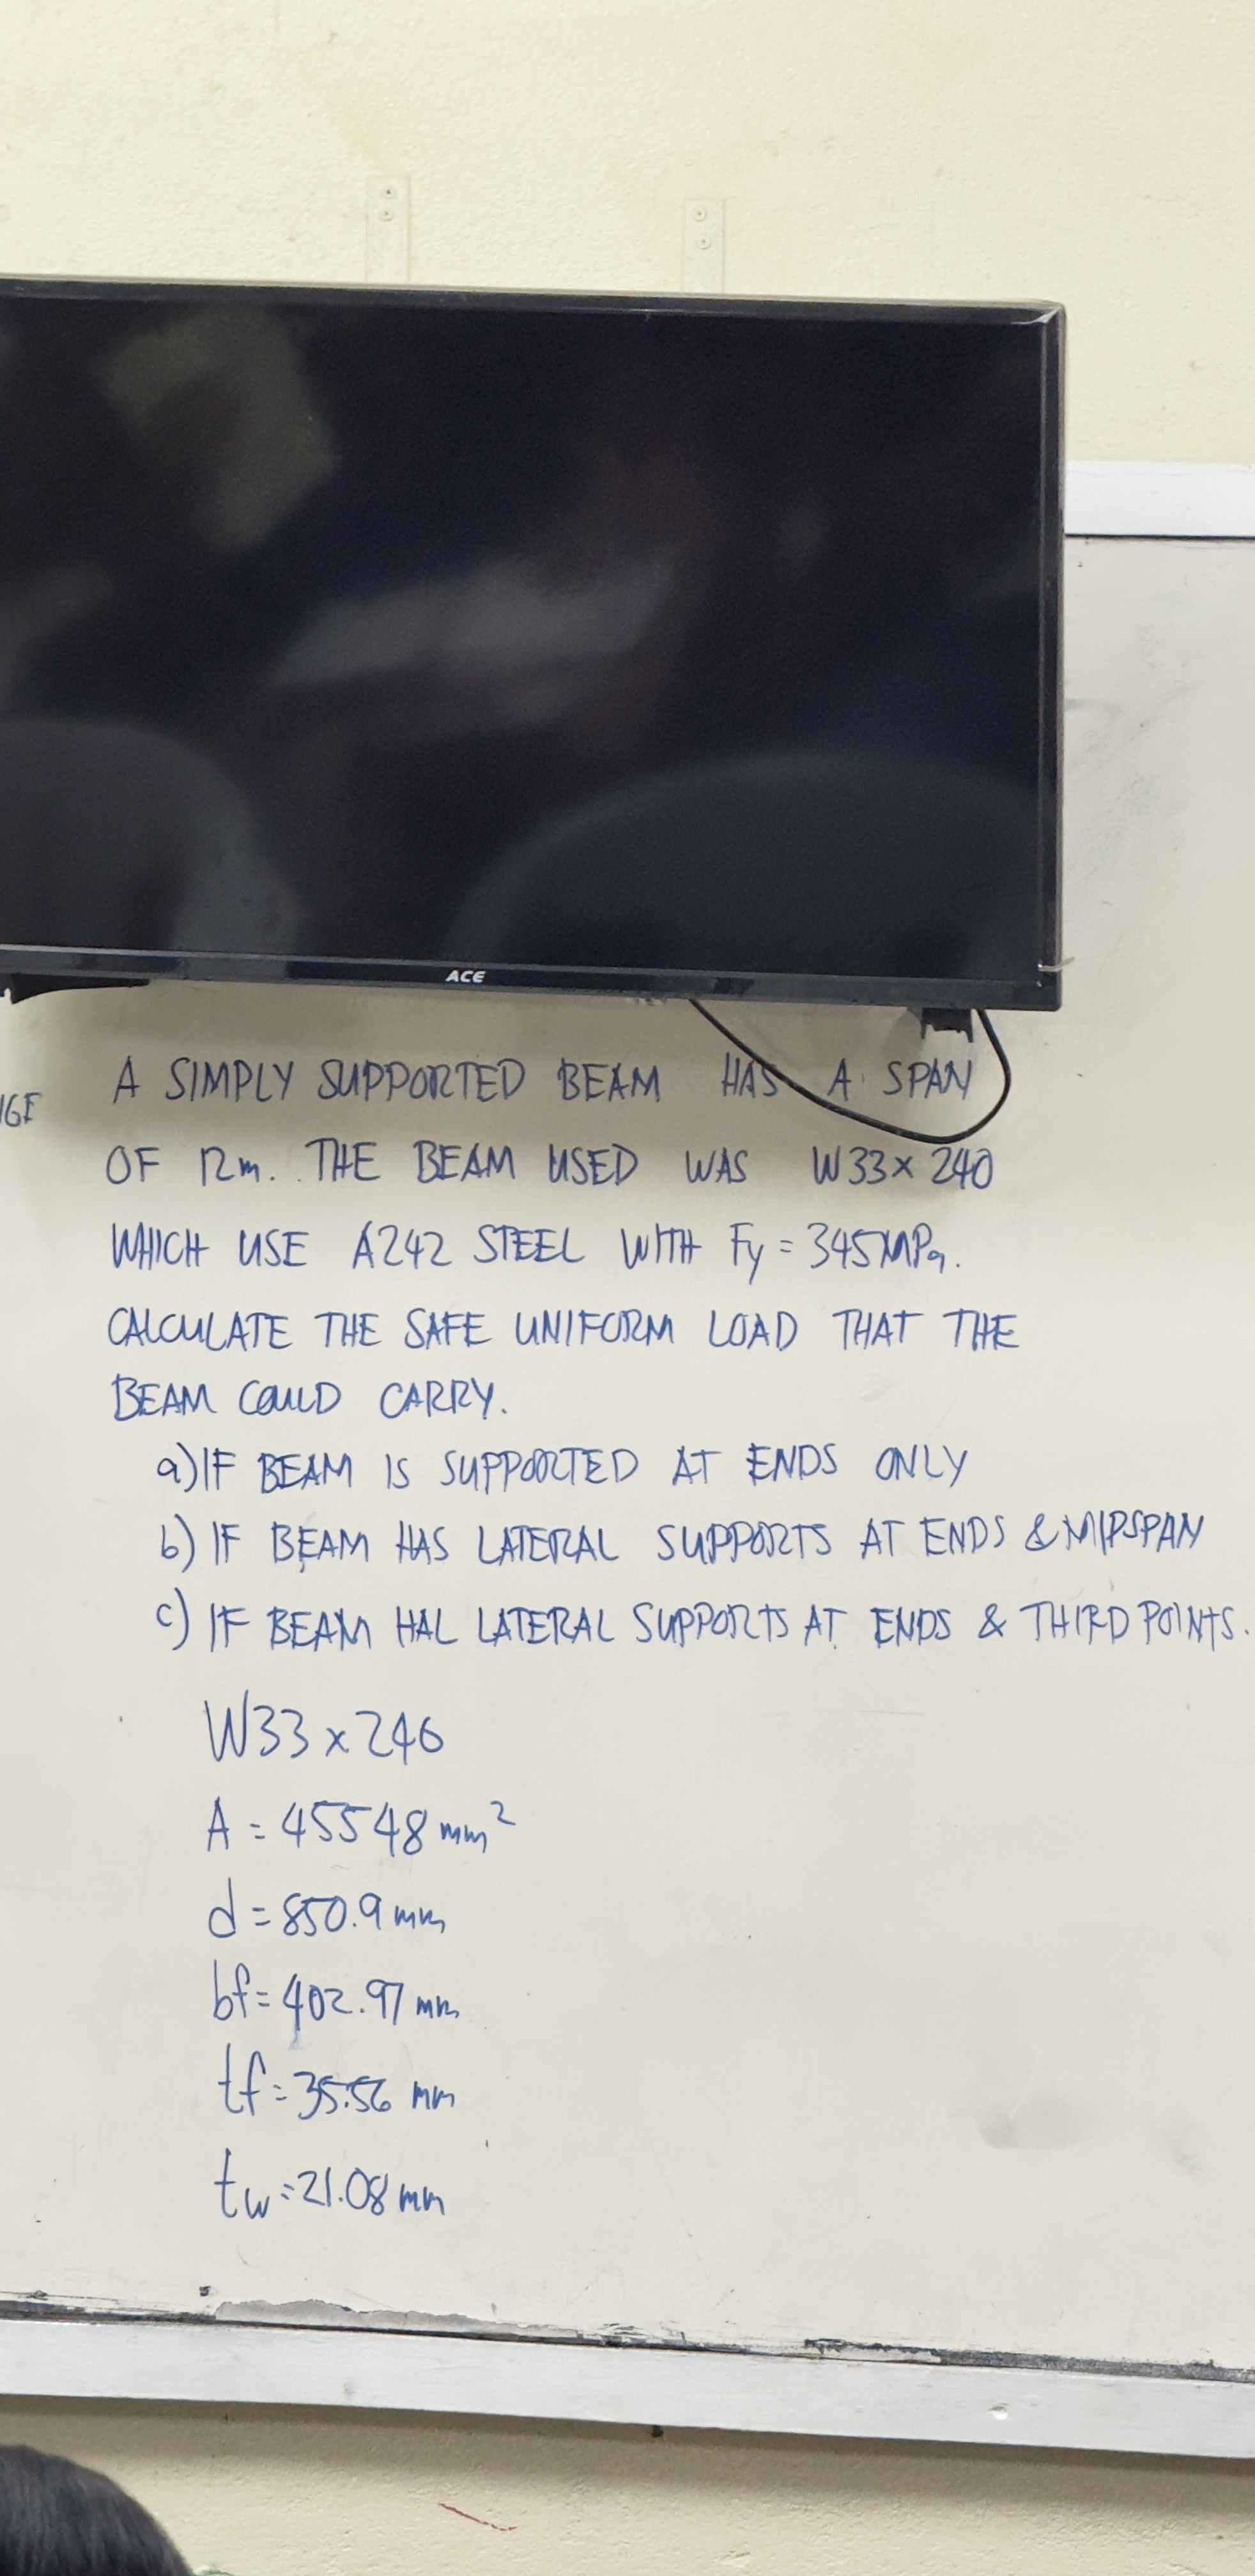 ACE
A SIMPLY SUPPORTED BEAM HAS A SPAN
OF 12m. THE BEAM USED WAS W33x240
WHICH USE A242 STEEL WITH Fy = 345MPa.
CALCULATE THE SAFE UNIFORM LOAD THAT THE
BEAM COULD CARRY.
a) IF BEAM IS SUPPORTED AT ENDS ONLY
b) IF BEAM HAS LATERAL SUPPORTS AT ENDS & MIDSPAN
c) IF BEAM HAL LATERAL SUPPORTS AT ENDS & THIRD POINTS.
W33x240
A = 45548 mm²
d = 850.9 mm
bf = 402.97 mm
tf = 35.56 mm
tw = 21.08 mm